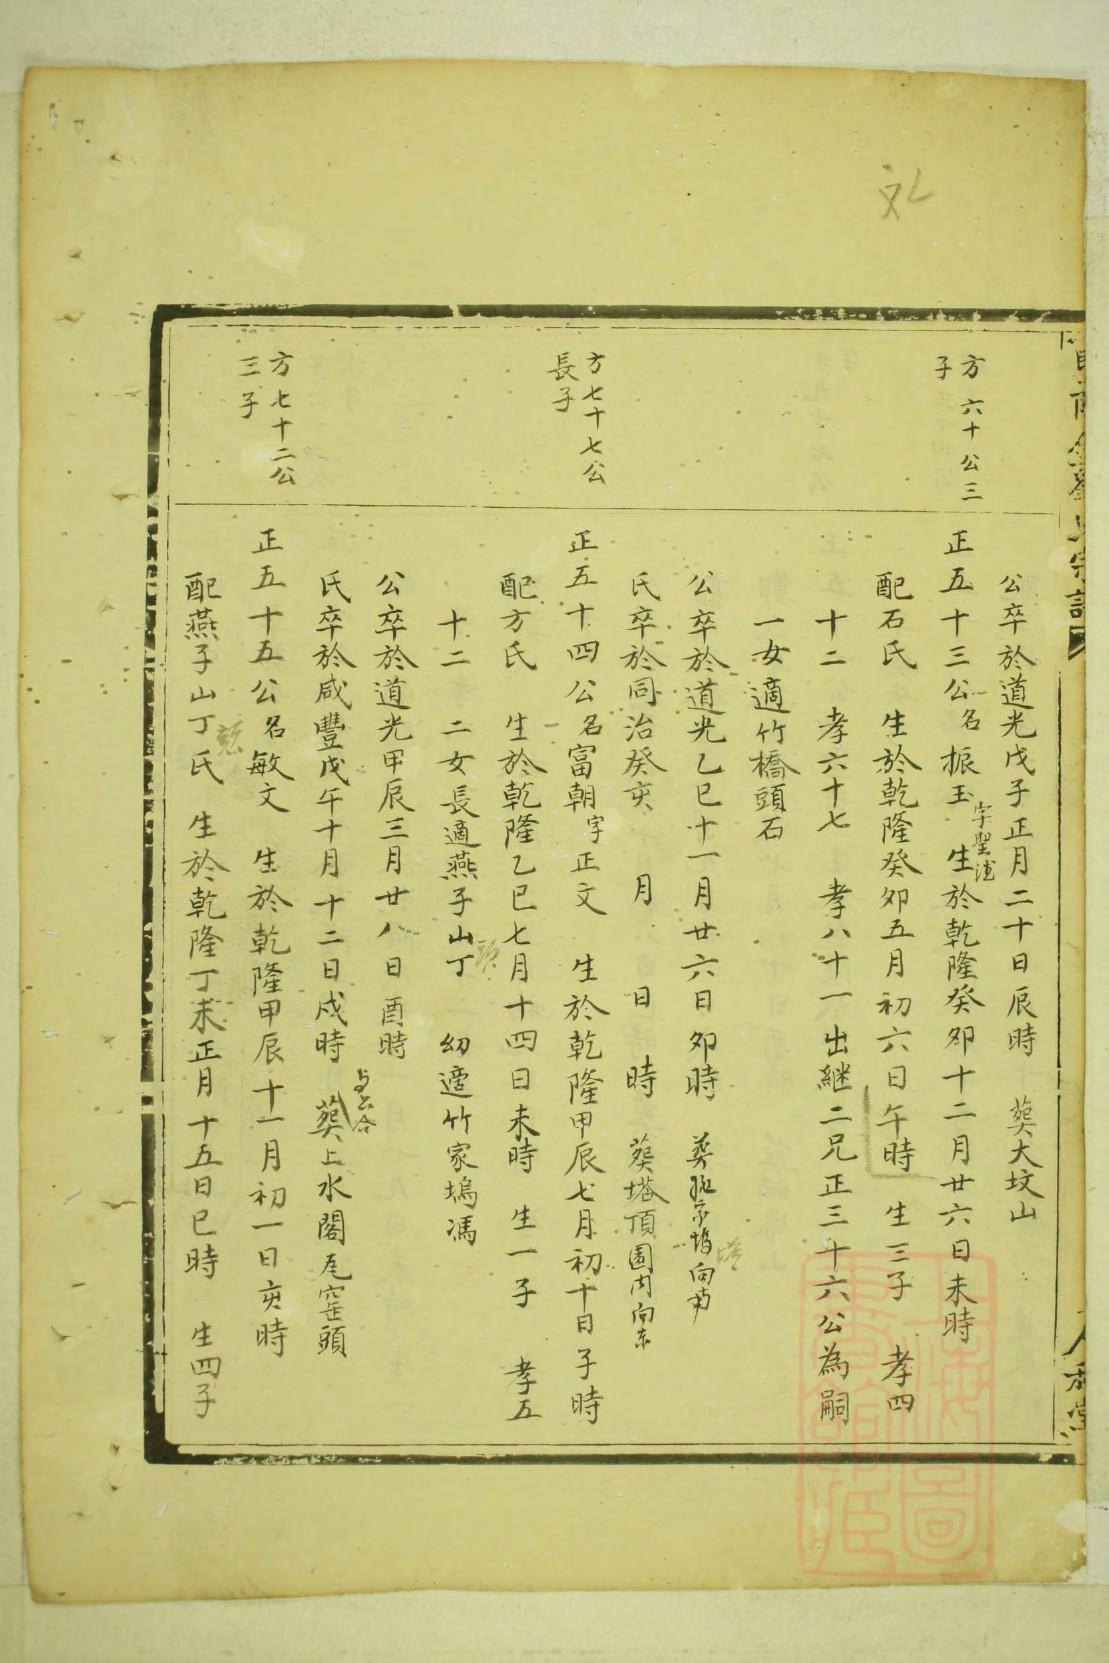 公卒於道光戊子正月二十日辰時 葬大坟山
方六十公三
子
正五十三公名振玉 生於乾隆癸卯十二月廿六日未時
字聖
配石氏 生於乾隆癸卯五月初六日午時 生三子 孝四
十二 孝六十七 孝八十一出継二兄正三十六公為嗣
一女適竹橋頭石
公卒於道光乙巳十一月廿六日卯時 葬 塢向南
塔
氏卒於同治癸亥 月 日 時 葬塔頂園内向东
方七十七公
長子
正五十四公名富朝字正文 生於乾隆甲辰七月初十日子時
配方氏 生於乾隆乙巳七月十四日未時 生一子 孝五
十二 二女長適燕子山丁 幼適竹家塢馮
公卒於道光甲辰三月廿八日酉時
氏卒於咸豐戊午十月十二日戌時 葬上水閣瓦窑頭
与公合
方七十二公
三子
正五十五公名敏文 生於乾隆甲辰十一月初一日亥時
配燕子山丁氏 生於乾隆丁未正月十五日巳時 生四子